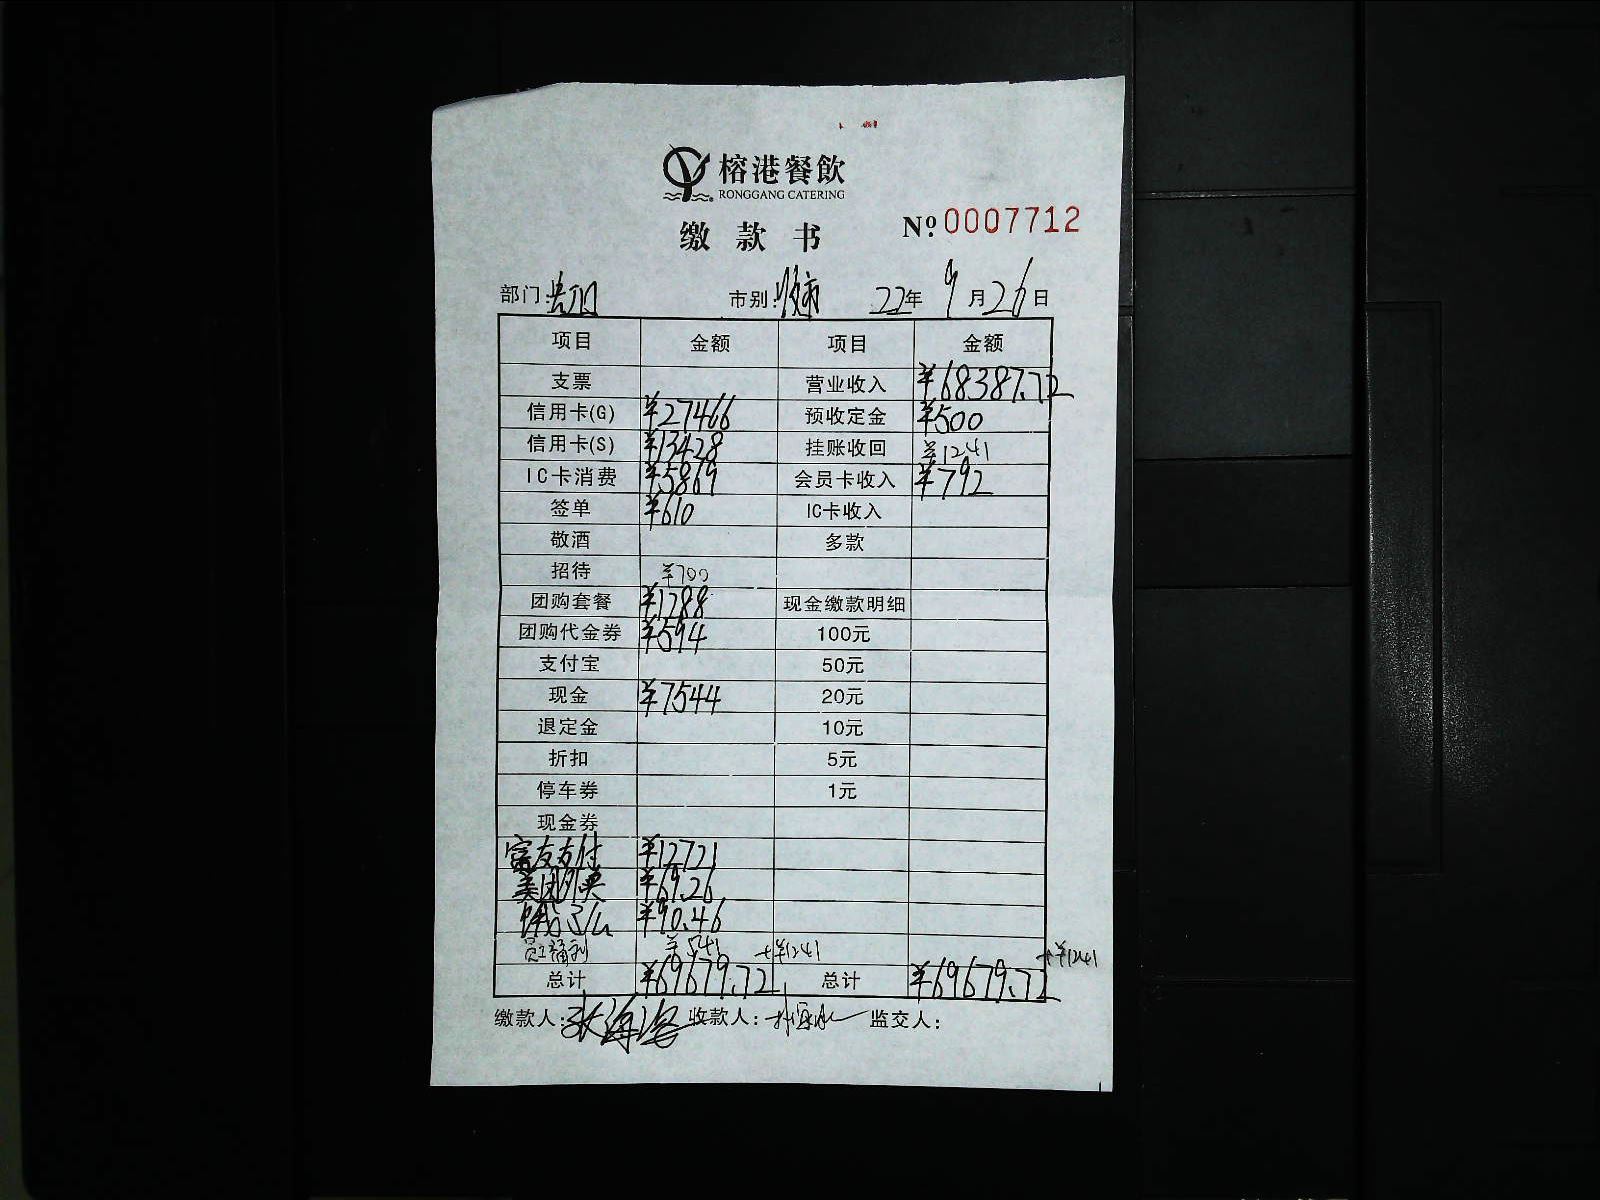 榕港餐飲
RONGGANG CATERING
缴款书
Nº 0007712
部门: 市别: 22年 9月 26日
项目 金额 项目 金额
支票 营业收入 ¥68387.72
信用卡(G) ¥27466 预收定金 ¥500
信用卡(S) ¥13428 挂账收回 ¥1241
IC卡消费 ¥5869 会员卡收入 ¥792
签单 ¥610 IC卡收入
敬酒 多款
招待 ¥700
团购套餐 ¥1288 现金缴款明细
团购代金券 ¥594 100元
支付宝 50元
现金 ¥7544 20元
退定金 10元
折扣 5元
停车券 1元
现金券
富友支付 ¥12721
美团外卖 ¥69.26
饿了么 ¥90.46
员工福利 ¥541 +¥1241 +¥1241
总计 ¥69679.72 总计 ¥69679.72
缴款人: 收款人: 监交人: